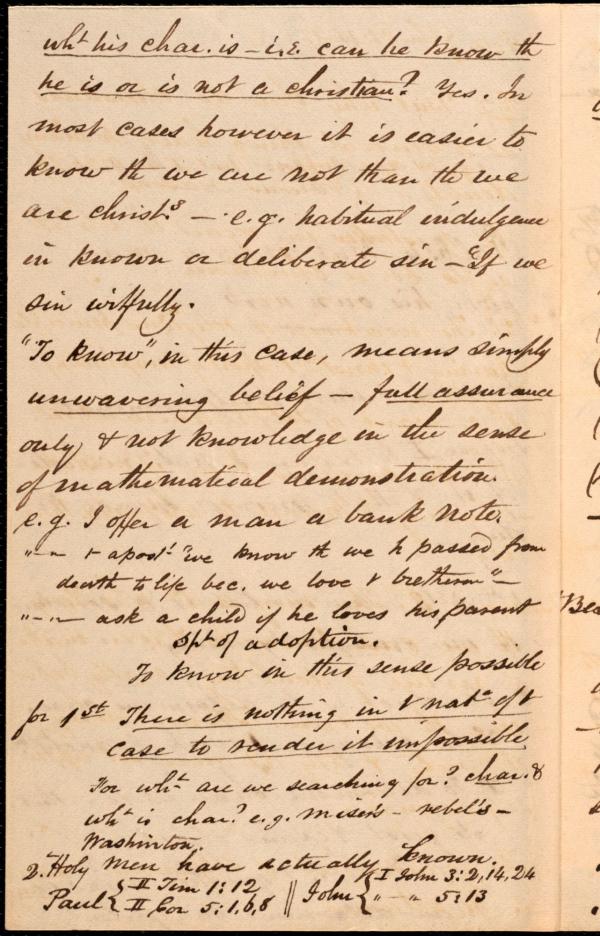 wht his char. is – i.e. can he know th
he is or is not a christian? Yes. In
most cases however it is easier to
know th we are not than th we
are christs. – e.g. habitual indulgence
in known or deliberate sin – "If we
sin wilfully.
"To know", in this case, means simply
unwavering belief – full assurance
only & not knowledge in the sense
of mathematical demonstration.
e.g. I offer a man a bank note.
" – " t apost. "we know th we h passed from
death to life bec. we love t bretheren" –
" – " – ask a child if he loves his parent
Spt of adoption.
To know in this sense possible
for 1st There is nothing in t nat. of t
case to render it impossible
For wht are we searching for? char. &
wht is char? e.g. miser's – rebel's –
Washinton.
2. Holy men have actually known.
Paul { II Tim 1:12 || John { I John 3:2,14,24
II Cor 5:1,6,8 " – " 5:13